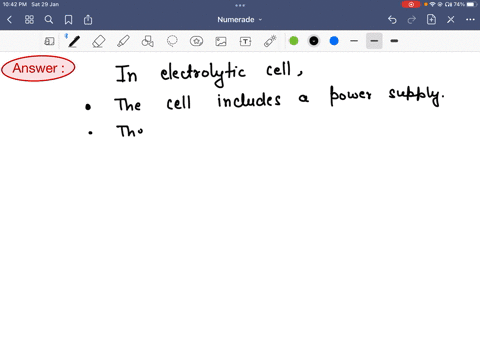 10:42 PM Sat 29 Jan
74%
Numerade
Answer :
In electrolytic cell,
• The cell includes a power supply.
• The